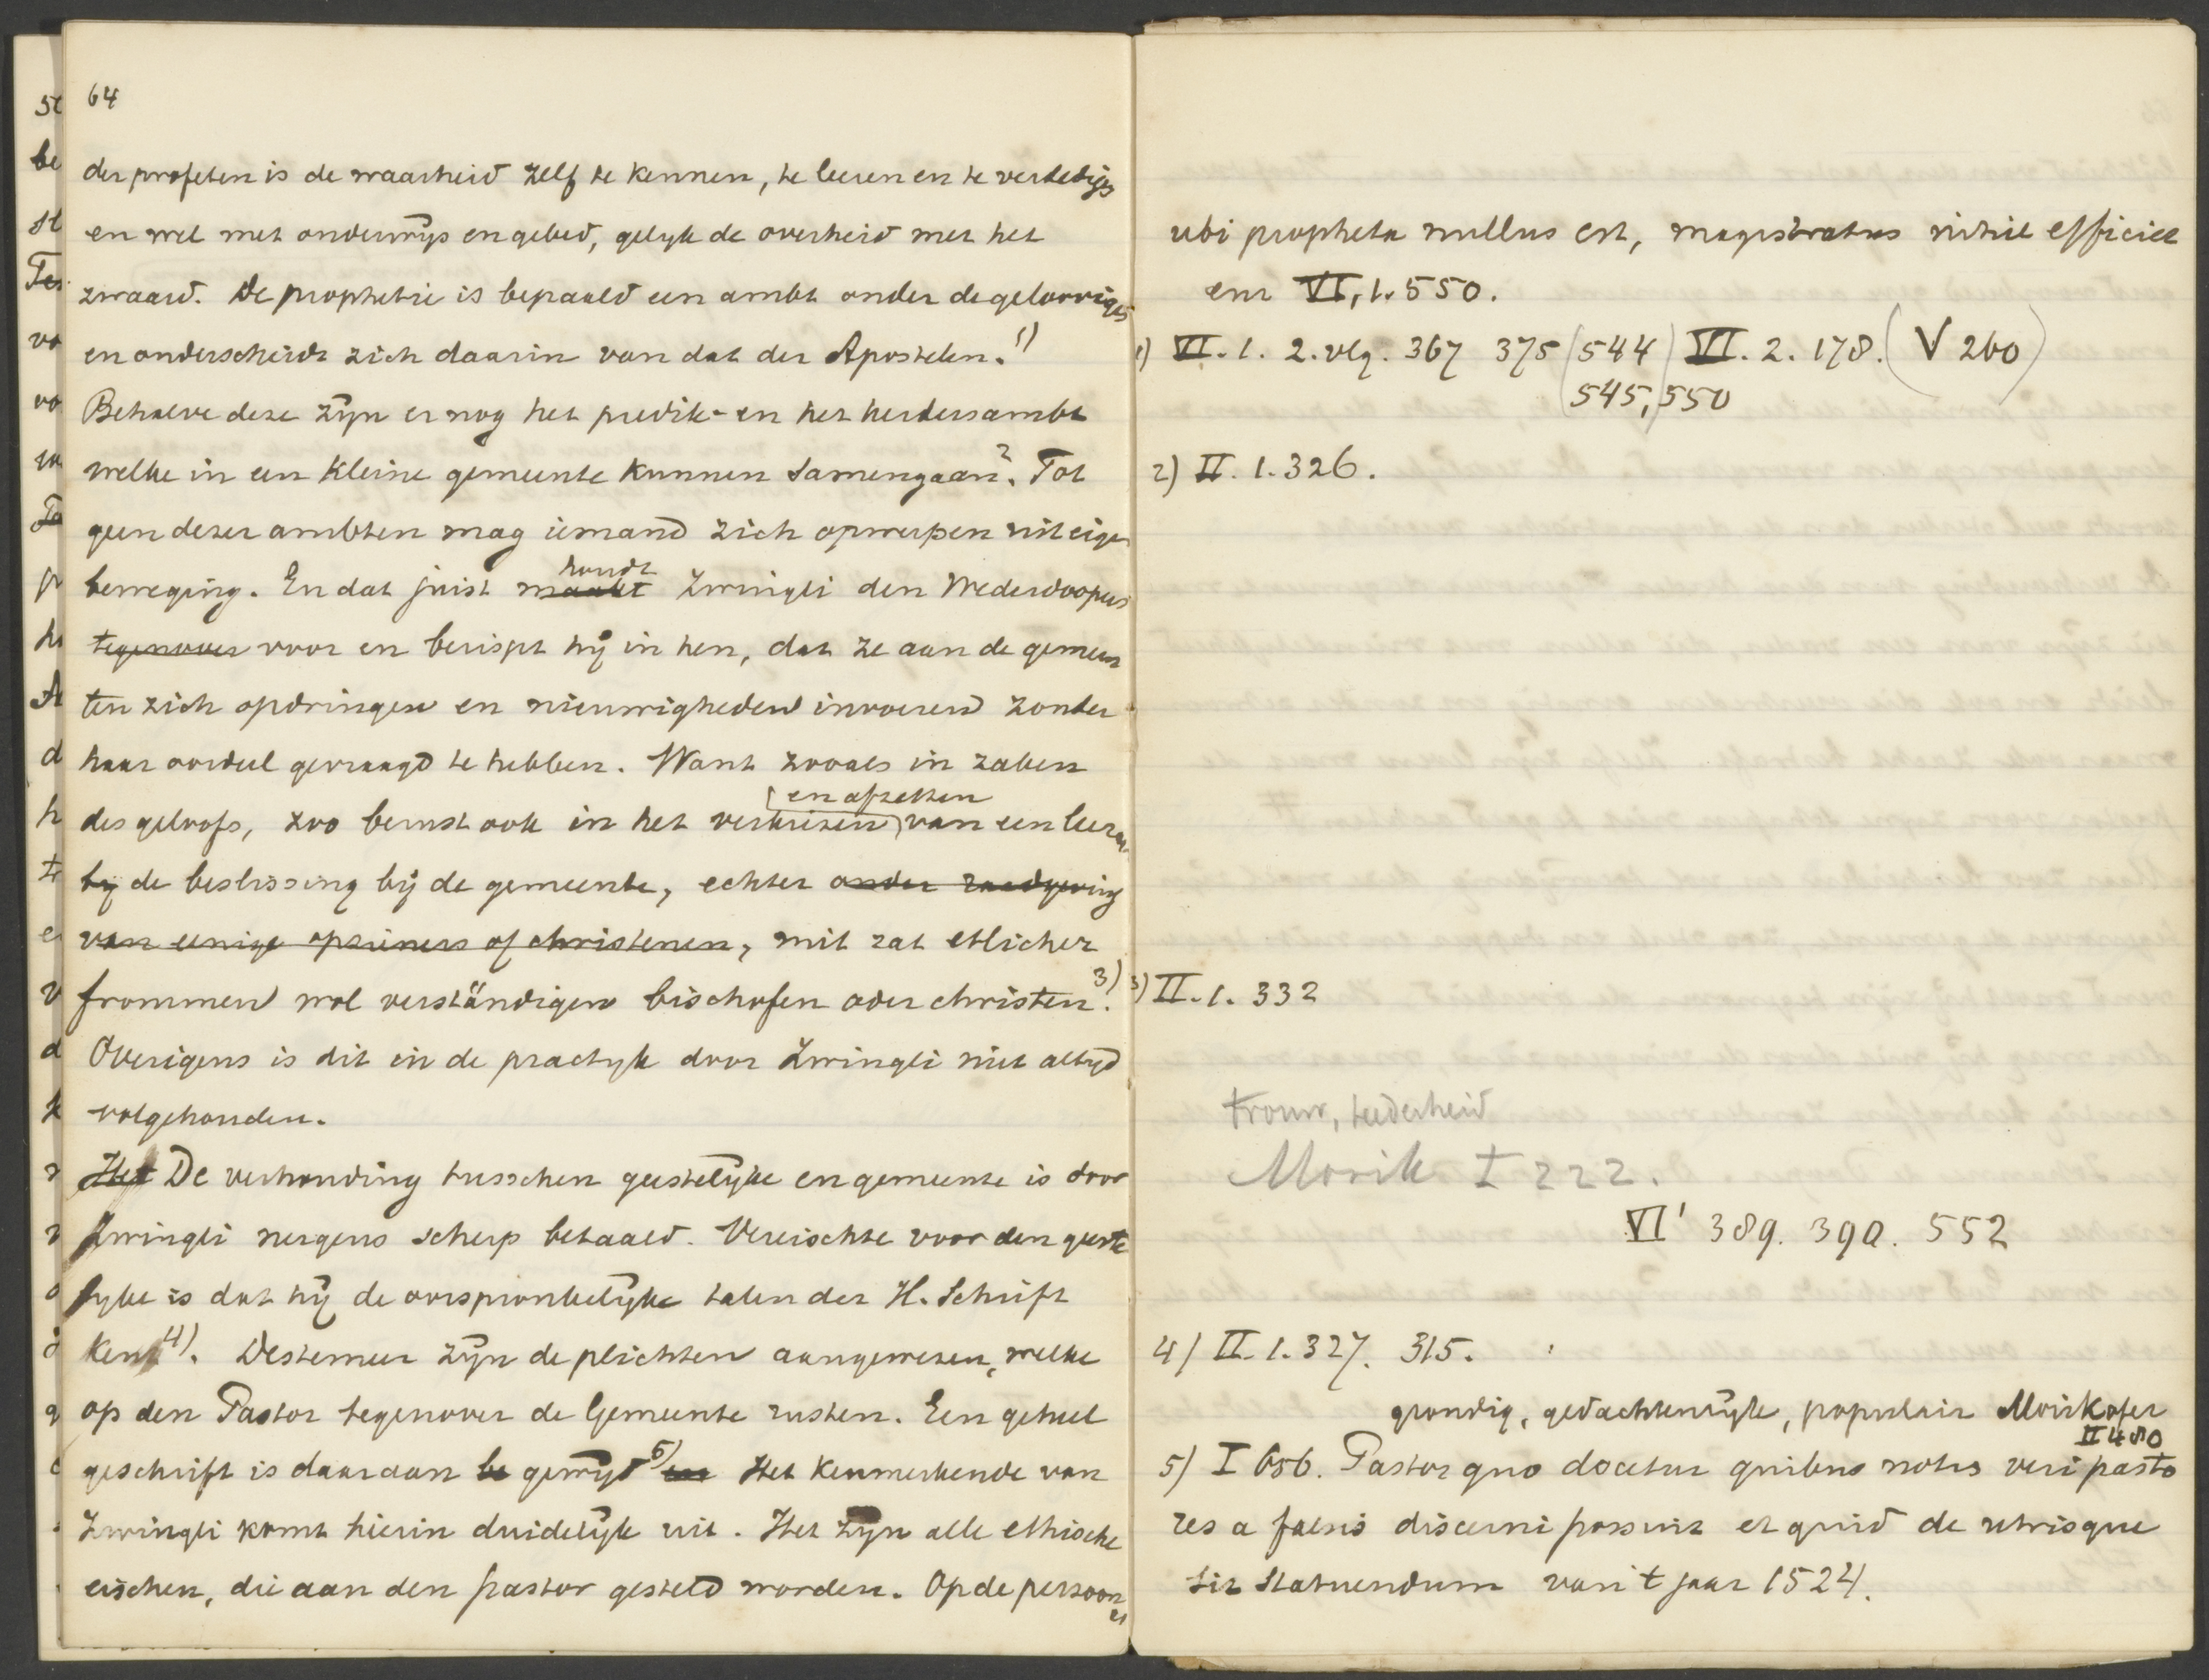 64
der profeten is de waarheid zelf te kennen, te leeren en te verdedigen
en wel met onderwijs en gebed, gelyk de overheid met het
zwaard. De prophetie is bepaald een ambt onder de geloovigen
en onderscheidt zich daarin van dat der Apostelen. 1)
Behalve deze zijn er nog het predik- en het herdersambt
welke in een kleine gemeente kunnen samengaan 2. Tot
geen dezer ambten mag iemand zich opwerpen uit eigen
houdt
beweging. En dat juist maakt Zwingli den Wederdoopers
tegenover voor en berispt hij in hen, dat ze aan de gemeen
ten zich opdringen en nieuwigheden invoeren zonder
haar oordeel gevraagd te hebben. Want zooals in zaken
en afzetten
des geloofs, zoo berust ook in het verkiezen van een leeraar
by de beslissing bij de gemeente, echter onder raadgeving
van eenige opzieners of christenen, mit rat etlicher
frommen wol verständigen bischofen oder christen. 3)
Overigens is dit in de practyk door Zwingli niet altyd
volgehouden.
Het De verhouding tusschen geestelijke en gemeente is door
Zwingli nergens scherp bepaald. Vereischte voor den geeste
lyke is dat hij de oorspronkelijke talen der H. Schrift
kent 4). Destemeer zijn de plichten aangewezen, welke
op den Pastor tegenover de Gemeente rusten. Een geheel
geschrift is daaraan be gewijd 5) Het kenmerkende van
Zwingli komt hierin duidelijk uit. Het zijn alle ethische
eischen, die aan den pastor gesteld worden. Op de persoon
ubi propheta nullus est, magistratus nihil efficiet
enz VI, 1. 550.
1) VI. 1. 2. vlg. 367 375 (544) VI. 2. 178. (V 260)
545, 550
2) II. 1. 326.
3) II. 1. 332
trouw, teederheid
Morik I 222.
VI' 389. 390. 552
4) II. 1. 327. 315.
grondig, gedachtenrijk, populair Mörikofer
II 480
5) I 656. Pastor quo docetur quibus notis veri pasto
res a falsis discerni possint et quid de utrisque
sit statuendum van 't jaar 1524.